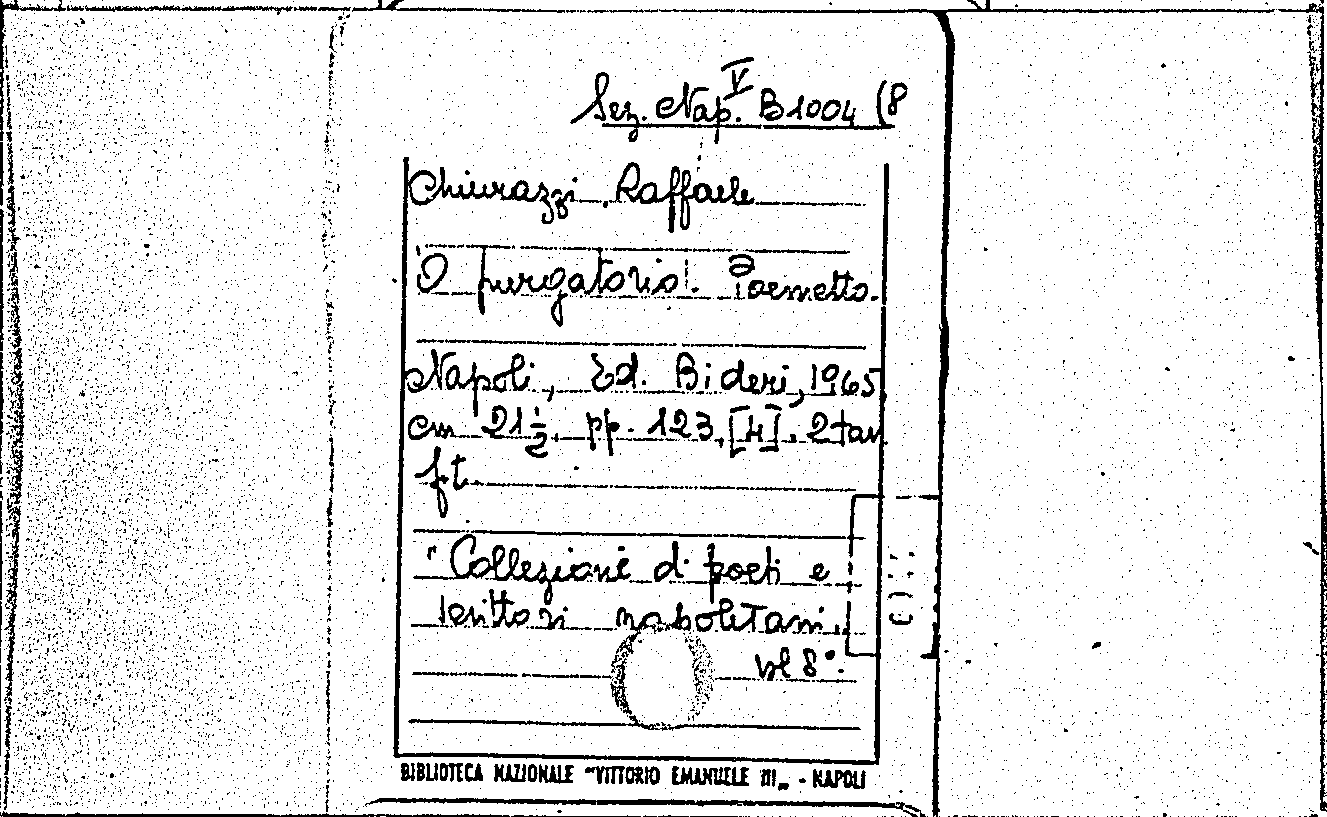 Sez. Nap. V B 1004 (8
Chiurazzi Raffaele
'O purgatorio! Poemetto.
Napoli, Ed. Bideri, 1965
cm 21½. pp. 123, [4]. 2 tav
f.t.
"Collezione di poeti e
scrittori napoletani.
vol 8°.
BIBLIOTECA NAZIONALE "VITTORIO EMANUELE III„ - NAPOLI